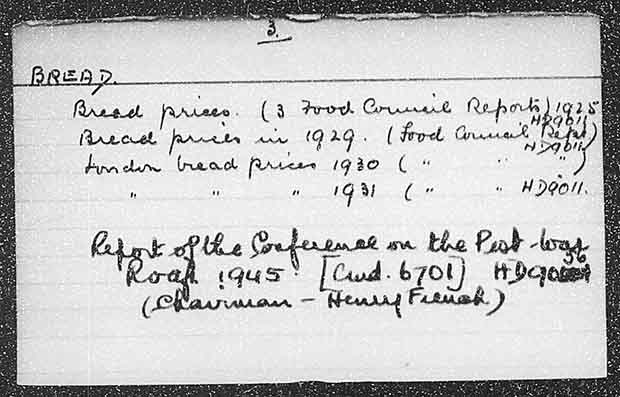 3.
BREAD.
Bread prices. (3 Food Council Reports) 1925
HD9011
Bread prices in 1929. (Food Council Repts)
HD9011
London bread prices 1930 ( " " " )
" " " 1931 ( " " HD9011.
Report of the Conference on the Post-War
Loaf 1945. [Cmd. 6701] HD9056
(Chairman - Henry French.)